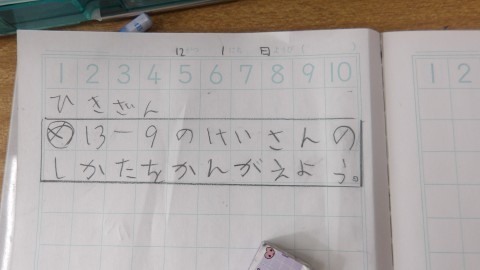 12 1 日
1 2 3 4 5 6 7 8 9 10
ひきざん
め 13-9のけいさんの
しかたをかんがえよう。
1 2